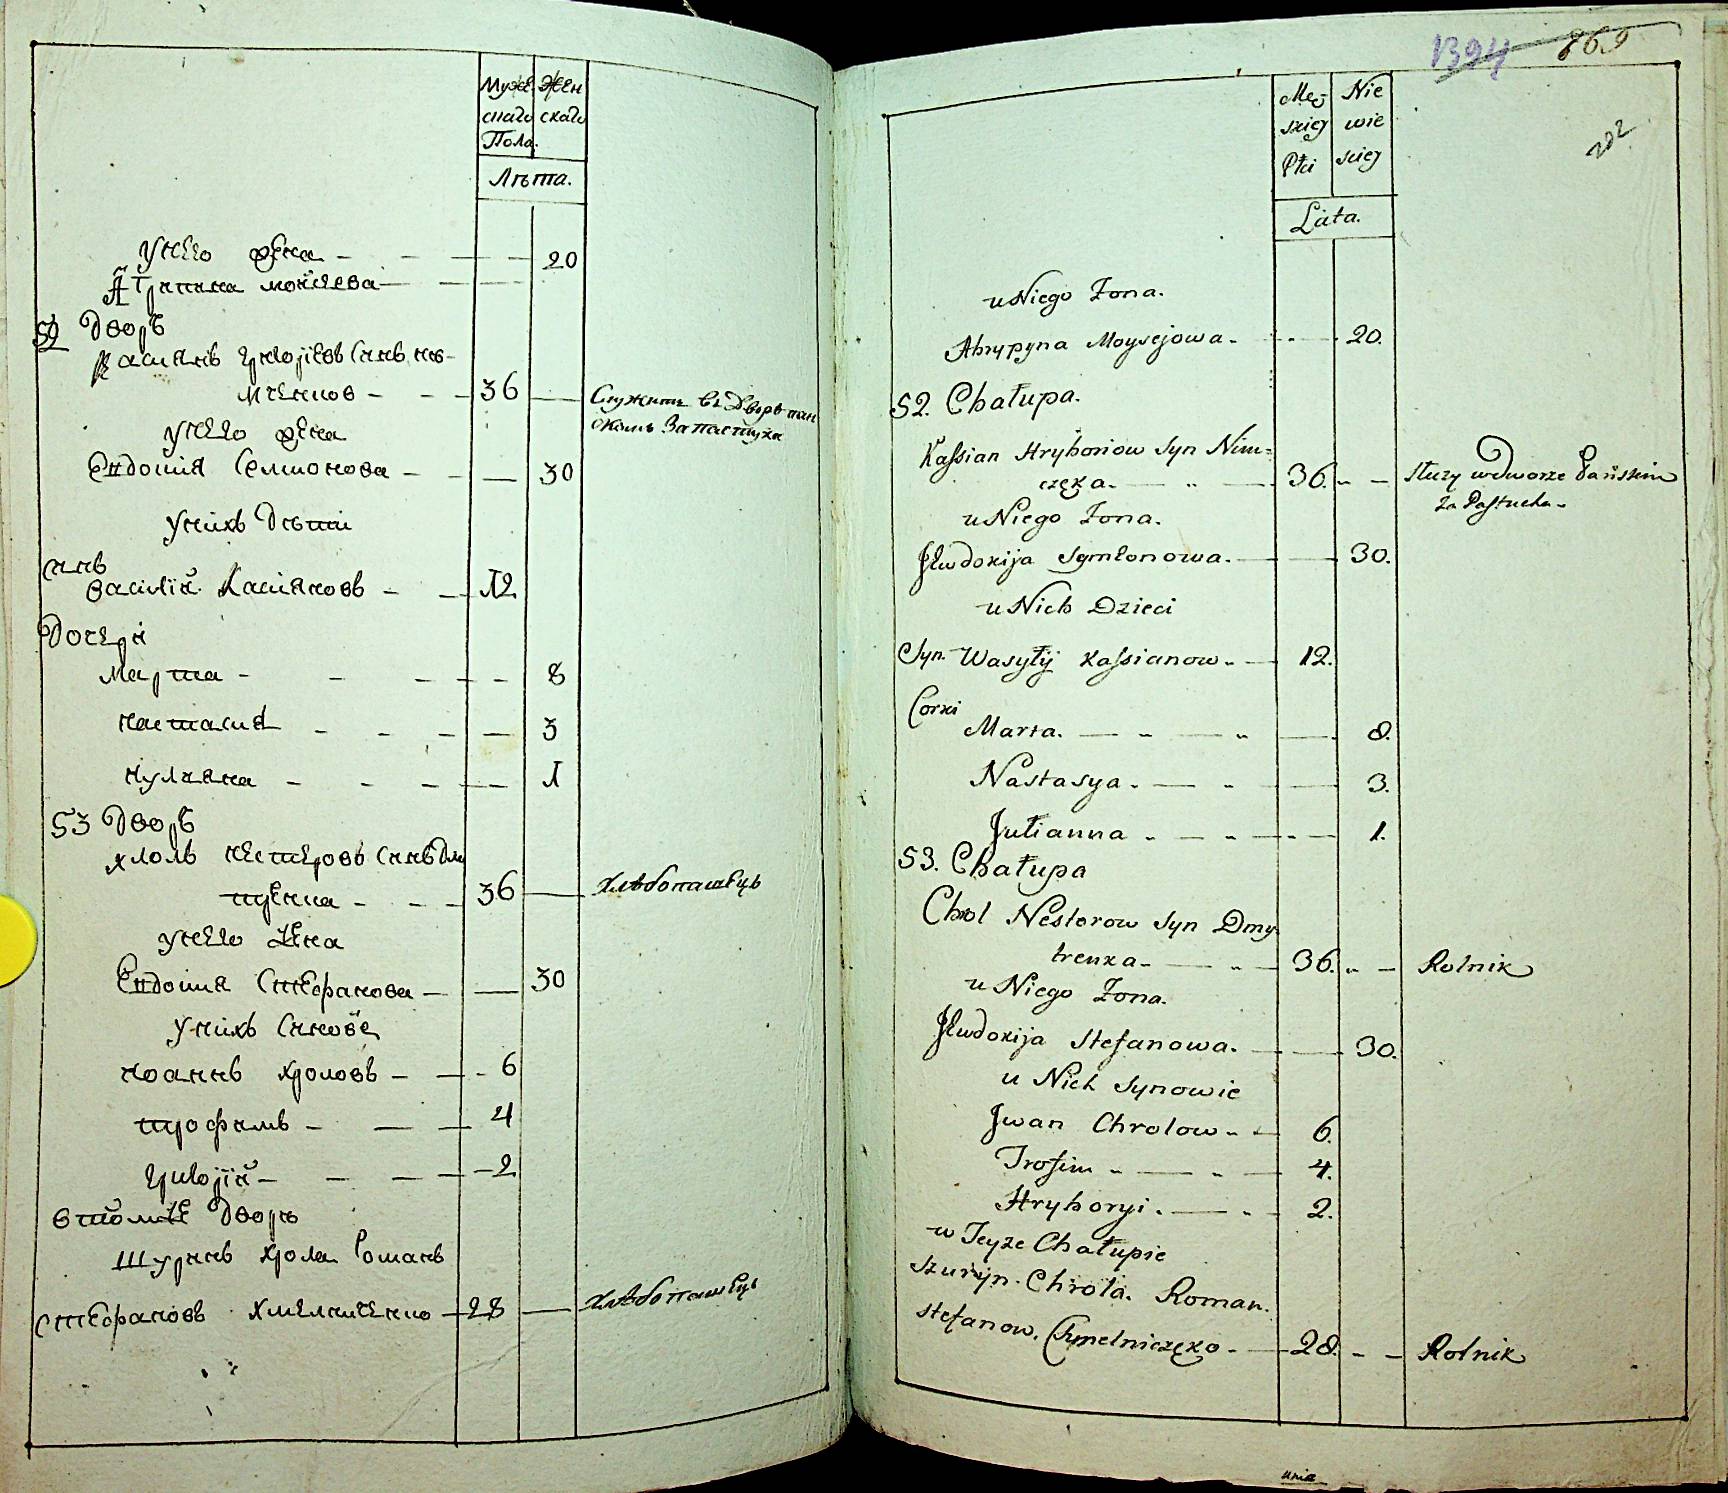 Мужескаго Пола
Женскаго
Лѣта.
Унего жена — 20
Агрипина моисеева —
52 Дворъ
Касиянъ григориевъ синъ ни-
мченков — 36 — Служитъ въ Дворѣ пан
скомъ За пастуха
Унего жена
Евдокия Семионова — 30
Унихъ Дѣти
синъ
василий Касияновъ — 12
Дочери
марта — 8
настасия — 3
иулияна — 1
53 Дворъ
хролъ нестеровъ синъ Дми
тренка — 36 — хлѣбопашецъ
унего жена
Евдокия Стефанова — 30
Унихъ синове
иоаннъ хроловъ — 6
трофимъ — 4
григорий — 2
втомже Дворѣ
Шуринъ хрола Романъ
стефановъ хмелниченко — 28 — хлѣбопашецъ
1394 869
202
Męskiej Płci
Niewieściej
Lata.
u Niego Żona.
Ahrypyna Moysejowa. — 20.
52. Chałupa.
Kassian Hryhoriow Syn Nim=
częka. — 36. — służy w dworze Pańskim
za Pastucha.
u Niego Żona.
Jewdokija Symeonowa. — 30.
u Nich Dzieci
Syn. Wasylij Kassianow. — 12.
Corki
Marta. — 8.
Nastasya. — 3.
Julianna — 1.
53. Chałupa
Chrol Nesterow Syn Dmy
trenka. — 36. — Rolnik
u Niego Żona.
Jewdokija Stefanowa. — 30.
u Nich Synowie
Jwan Chrolow. — 6.
Trofim — 4.
Hryhoryi. — 2.
w Teyże Chałupie
Szuryn. Chrola. Roman.
Stefanow. Chmelniczęko. — 28. — Rolnik
unia